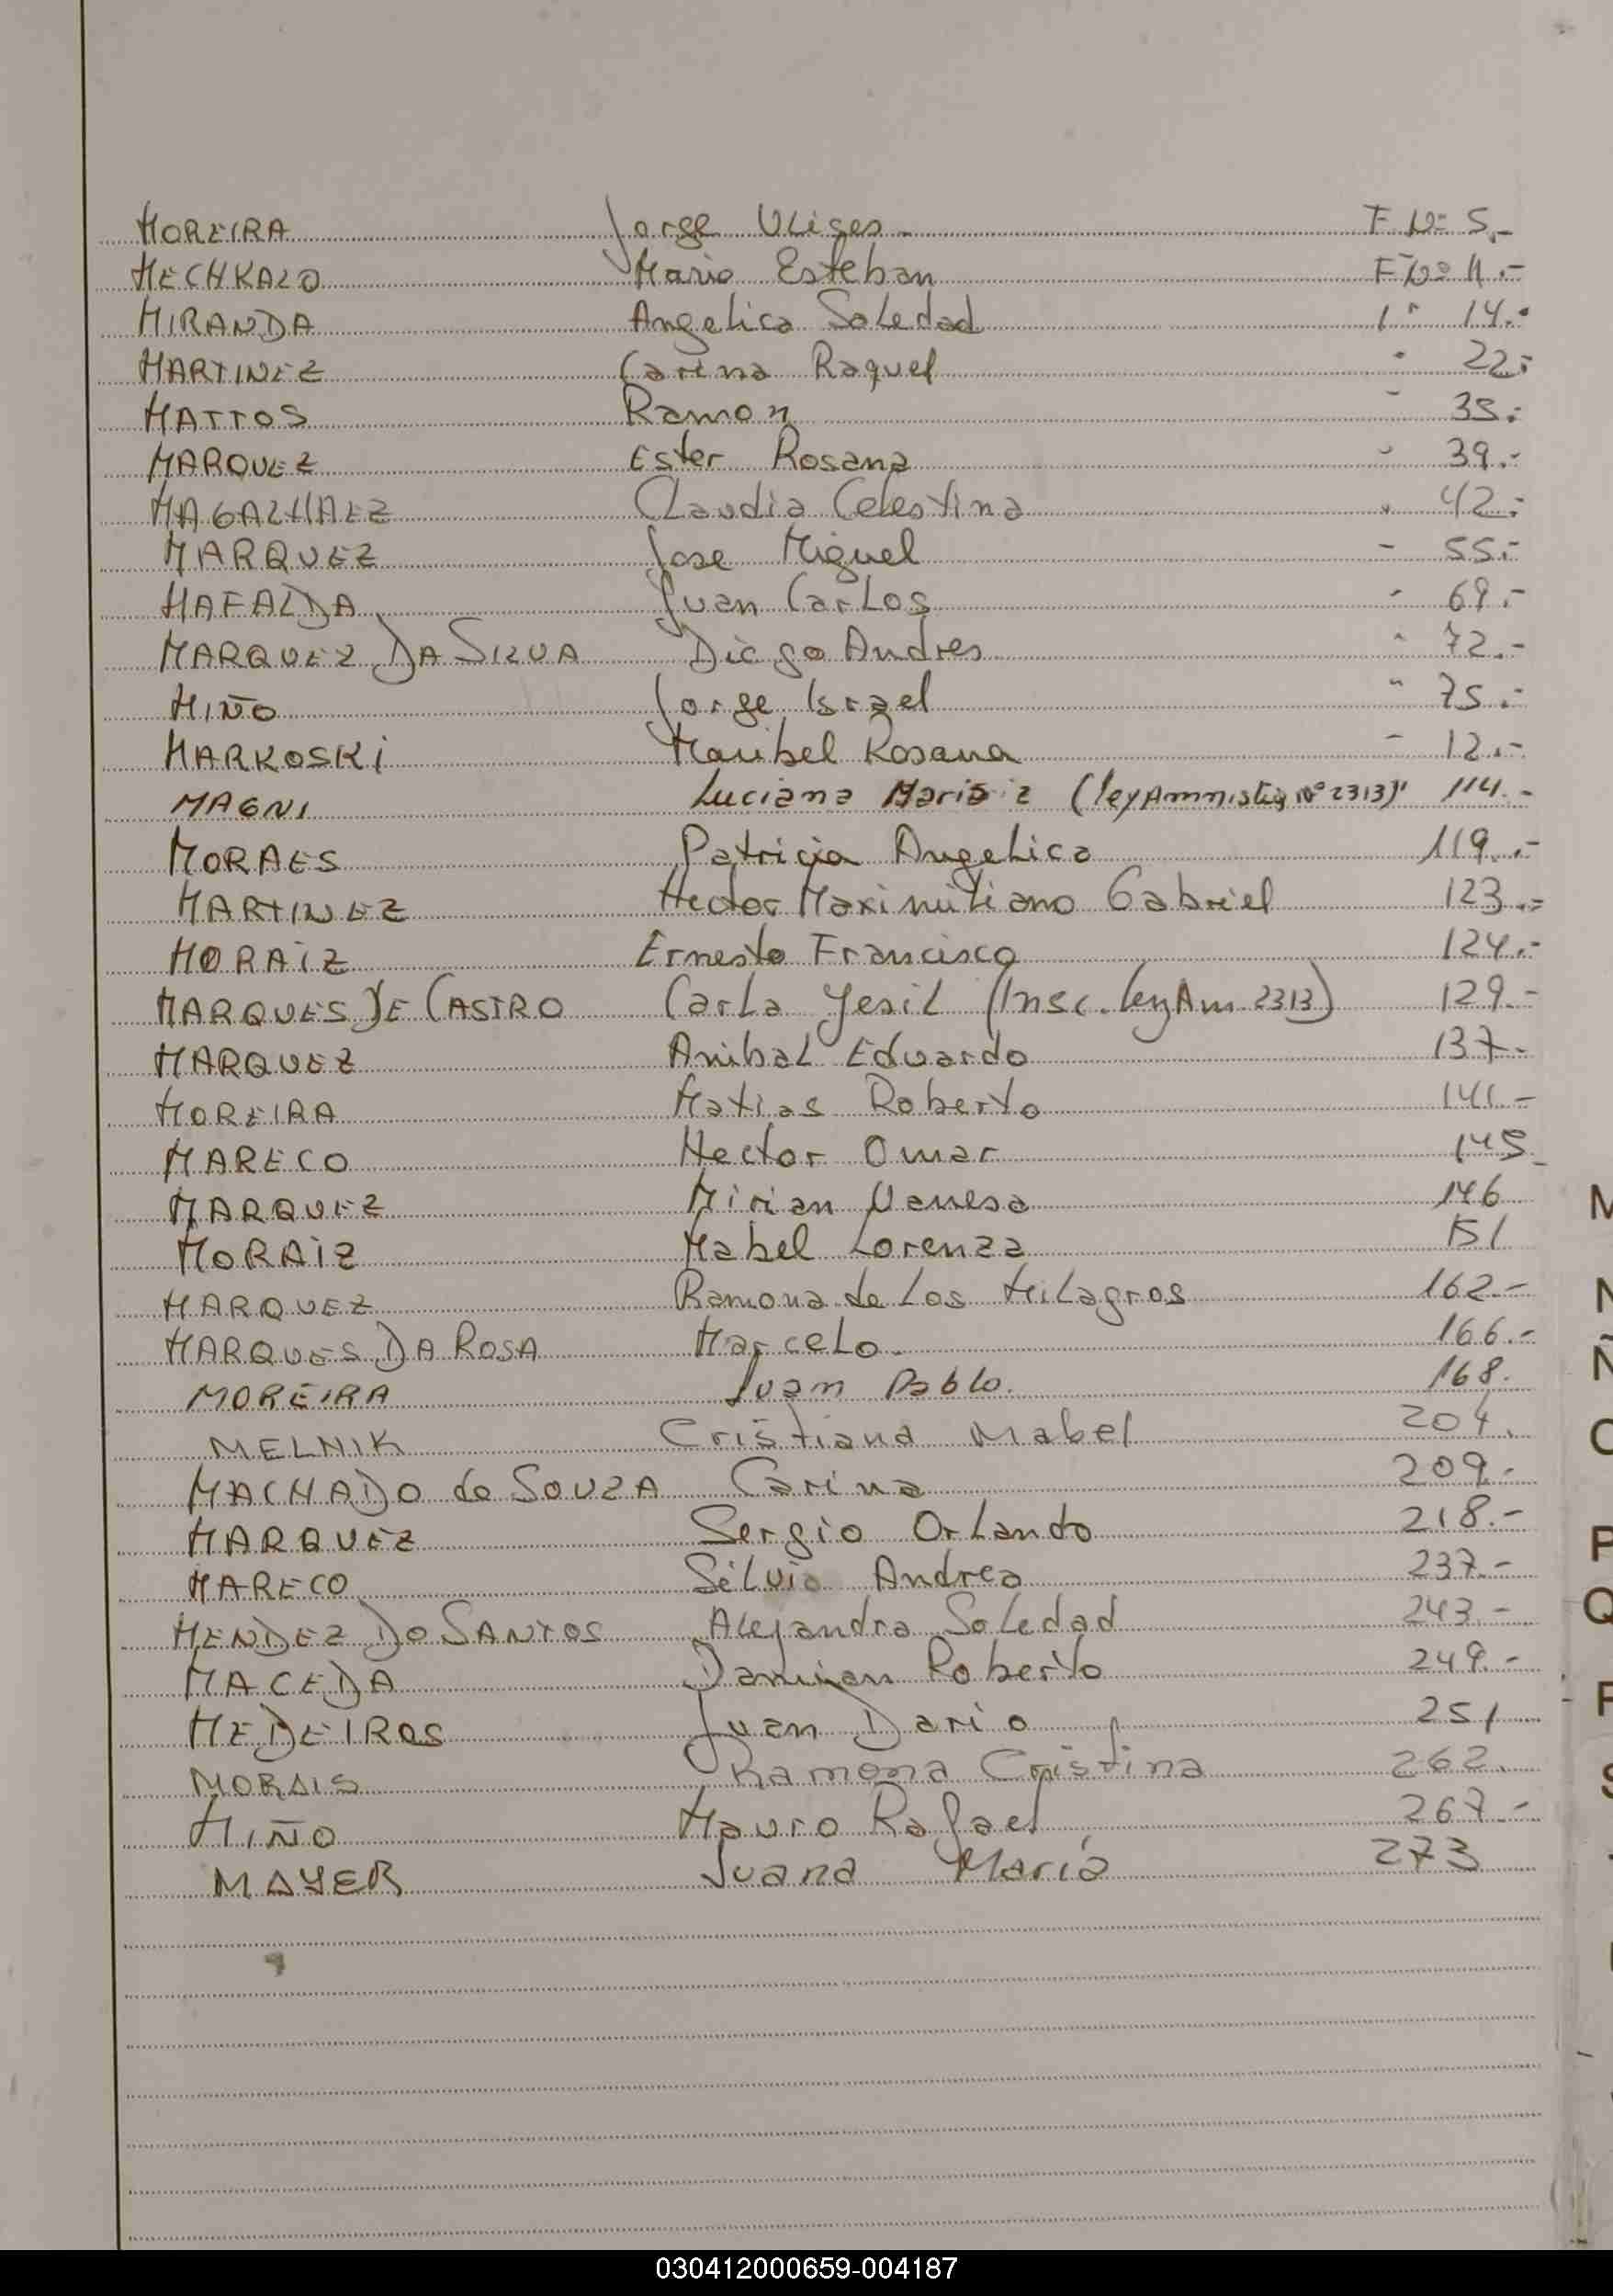 MOREIRA Jorge Ulises. F Nº 5.-
MECHKALO Mario Esteban Fº Nº 11.-
MIRANDA Angelica Soledad 1 " 14.-
MARTINEZ Carina Raquel " 22.-
MATTOS Ramon " 35.-
MARQUEZ Ester Rosana " 39.-
MAGALHAEZ Claudia Celestina " 42.-
MARQUEZ Jose Miguel - 55.-
MAFALDA Juan Carlos " 69.-
MARQUEZ DA SILVA Diego Andres " 72.-
MIÑO Jorge Israel " 75.-
MARKOSKI Maribel Rosana - 12.-
MAGNI Luciana Mariz (ley Amnistia Nº 2313) 114.-
MORAES Patricia Angelica 119.-
MARTINEZ Hector Maximiliano Gabriel 123.-
MORAIZ Ernesto Francisco 124.-
MARQUES DE CASTRO Carla Yesil (Insc. ley Am. 2313) 129.-
MARQUEZ Anibal Eduardo 137.-
MOREIRA Matias Roberto 141.-
MARECO Hector Omar 145-
MARQUEZ Mirian Vanesa 146
MORAIZ Mabel Lorenza 151
MARQUEZ Ramona de Los Milagros 162.-
MARQUES DA ROSA Marcelo. 166.-
MOREIRA Juan Pablo. 168.
MELNIK Cristiana Mabel 204.
MACHADO de SOUZA Carina 209.-
MARQUEZ Sergio Orlando 218.-
MARECO Silvia Andrea 237.-
MENDEZ DO SANTOS Alejandra Soledad 243.-
MACEDA Damian Roberto 249.-
MEDEIROS Juan Dario 251
MORAIS Ramona Cristina 262.
MIÑO Mauro Rafael 267.-
MAYER Juana María 273
M
N
Ñ
O
P
Q
R
S
030412000659-004187